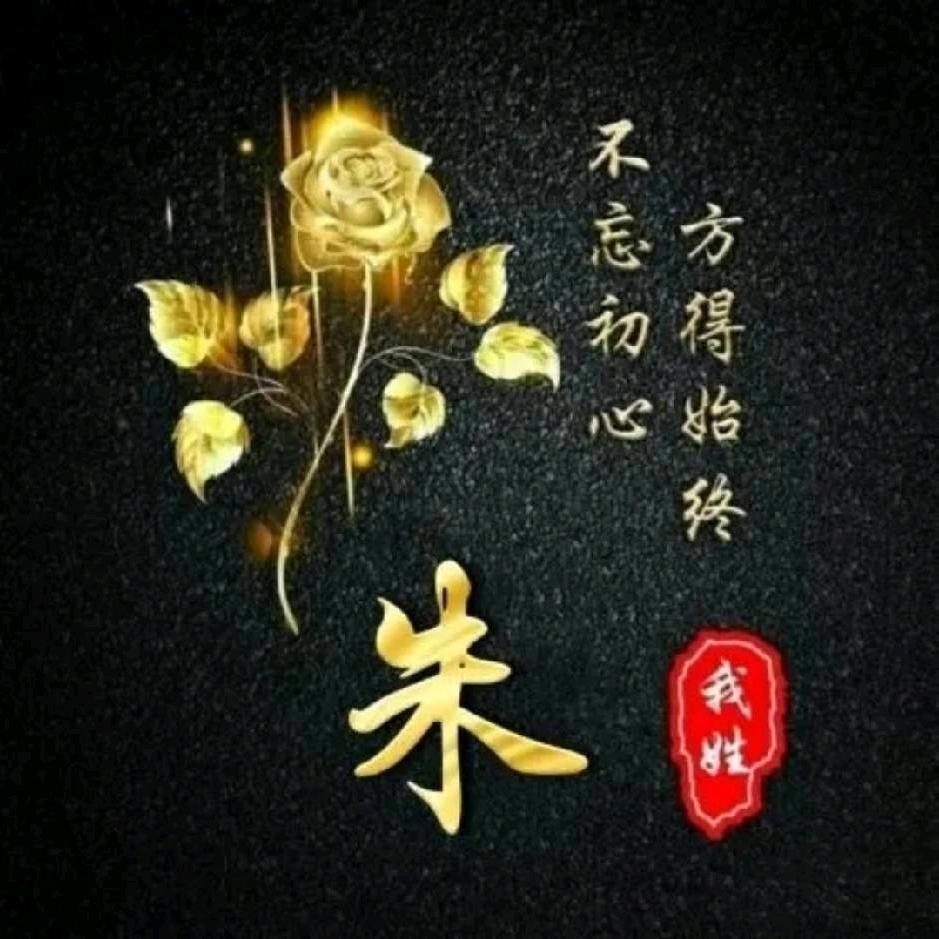 不忘初心
方得始终
朱
我姓